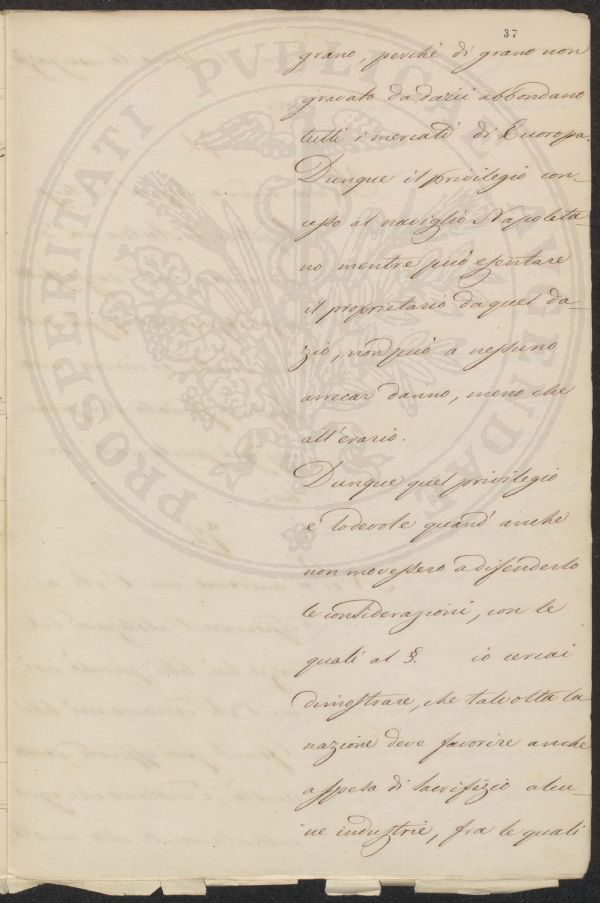 37
grano, perché di grano non
gravato da dazii abbondano
tutti i mercati di Euoropa.
Dunque il privilegio con-
cesso al naviglio Napoleta-
no mentre può esentare
il proprietario da quel da-
zio, non può a nessuno
arrecar danno, meno che
all'erario.
Dunque quel privilegio
è lodevole quand'anche
non movessero a difenderlo
le considerazioni, con le
quali al §. io cercai
dimostrare, che talvolta la
nazione deve favorire anche
a spesa di sacrifizio alcu-
ne industrie, fra le quali
PROSPERITATI PUBLICAE AUGENDAE